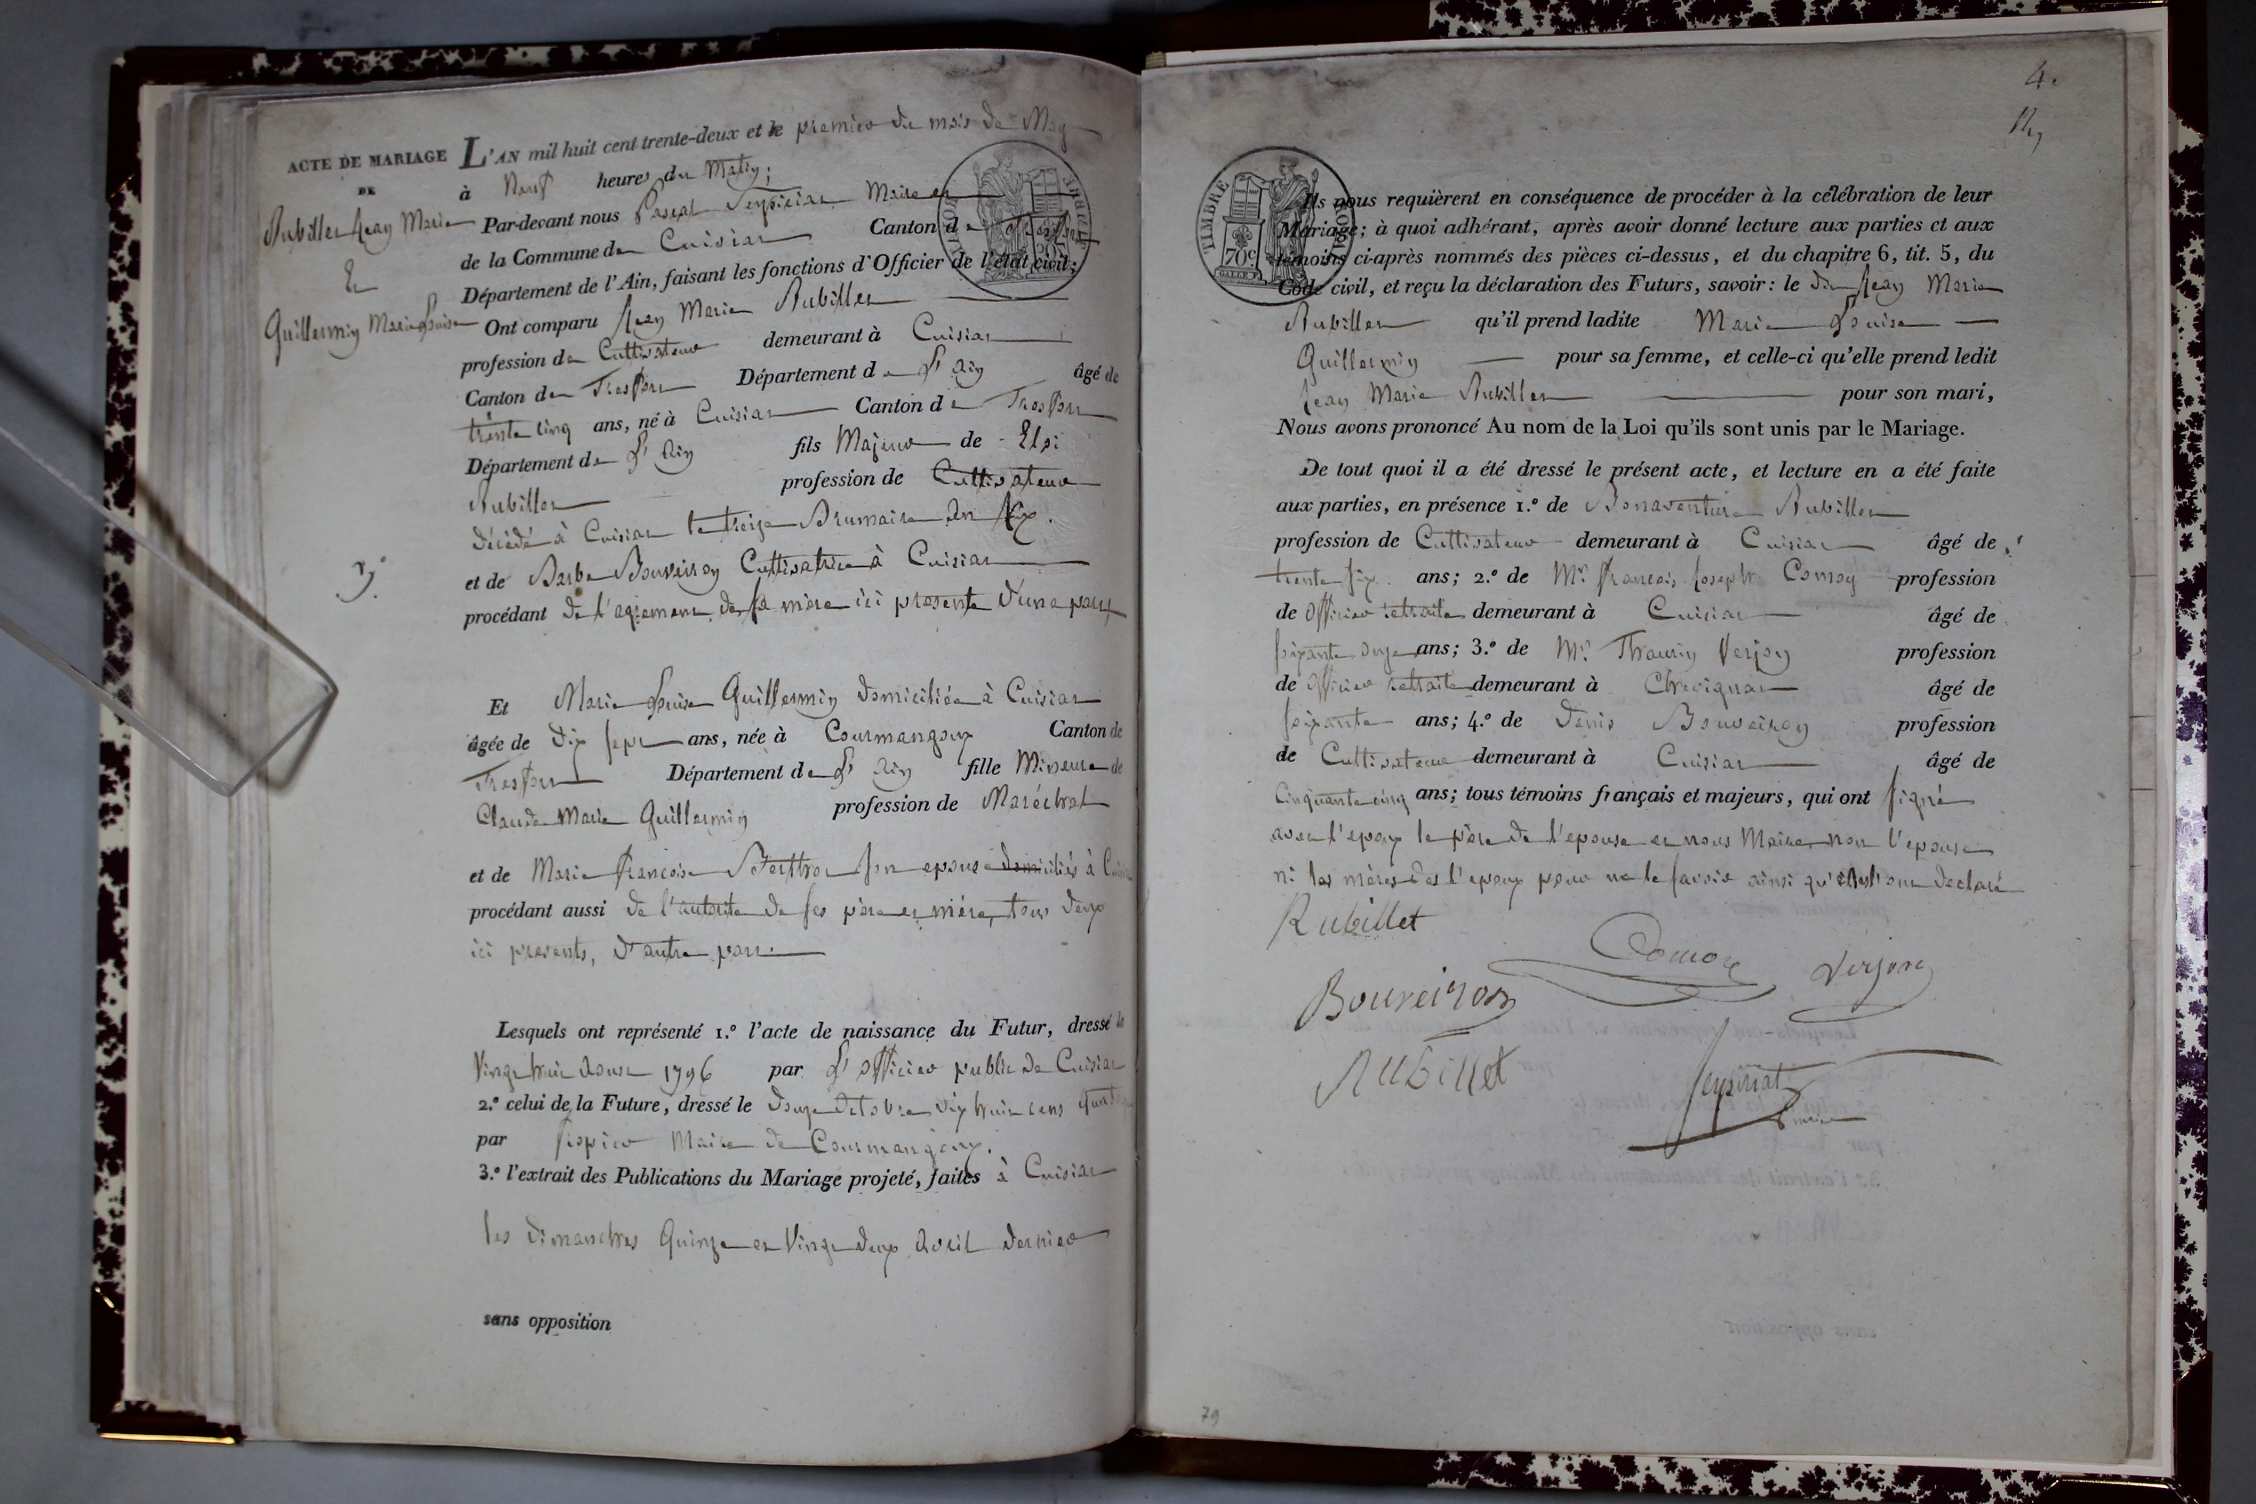 ACTE DE MARIAGE
DE
Rubillet Jean Marie
Et
Guillermin Marie Louise
L'AN mil huit cent trente-deux et le premier du mois de May
à Neuf heures du Matin;
Par-devant nous Pascal Seyssiriat Maire
de la Commune de Cuisiat Canton de
Département de l'Ain, faisant les fonctions d'Officier de l'état civil;
Ont comparu Jean Marie Rubillet
profession de Cultivateur demeurant à Cuisiat
Canton de Treffort Département de l'Ain âgé de
trente cinq ans, né à Cuisiat Canton de Treffort
Département de l'Ain fils Majeur de Eloi
Rubillet profession de Cultivateur
décédé à Cuisiat le treize Brumaire An
et de Barbe Bouveiron Cultivatrice à Cuisiat
procédant de l'agrement de sa mère ici presente d'une part
Et Marie Louise Guillermin domiciliée à Cuisiat
âgée de dix sept ans, née à Courmangoux Canton de
Treffort Département de l'Ain fille Mineure de
Claude Marie Guillermin profession de Maréchal
et de Marie Francoise son epouse domiciliés à
procédant aussi de l'autorité de ses père et mère, tous deux
ici presents, d'autre part
Lesquels ont représenté 1.º l'acte de naissance du Futur, dressé le
Vingt huit Aoust 1796 par l'officier public de Cuisiat
2.º celui de la Future, dressé le douze octobre dix huit cent
par Maire de Courmangoux.
3.º l'extrait des Publications du Mariage projeté, faites à Cuisiat
les dimanches Quinze et Vingt deux Avril dernier
sans opposition
4.
TIMBRE ROYAL
70c
Ils nous requièrent en conséquence de procéder à la célébration de leur
Mariage; à quoi adhérant, après avoir donné lecture aux parties et aux
témoins ci-après nommés des pièces ci-dessus, et du chapitre 6, tit. 5, du
Code civil, et reçu la déclaration des Futurs, savoir: le dit Jean Marie
Rubillet qu'il prend ladite Marie Louise
Guillermin pour sa femme, et celle-ci qu'elle prend ledit
Jean Marie Rubillet pour son mari,
Nous avons prononcé Au nom de la Loi qu'ils sont unis par le Mariage.
De tout quoi il a été dressé le présent acte, et lecture en a été faite
aux parties, en présence 1.º de Bonaventure Rubillet
profession de Cultivateur demeurant à Cuisiat âgé de
trente six ans; 2.º de Mr. francois Joseph Comoy profession
de Officier retraité demeurant à Cuisiat âgé de
soixante onze ans; 3.º de Mr. Thaurin Verjon profession
de Officier retraité demeurant à Chevignat âgé de
soixante ans; 4.º de Denis Bouveiron profession
de Cultivateur demeurant à Cuisiat âgé de
Cinquante cinq ans; tous témoins français et majeurs, qui ont signé
avec l'epoux le père de l'epouse et nous Maire, non l'epouse
ni les mères des l'epoux pour ne le savoir ainsi qu'elles l'ont declaré
Rubillet
Comoy
Verjon
Bouveiron
Rubillet
Seyssiriat
maire
79